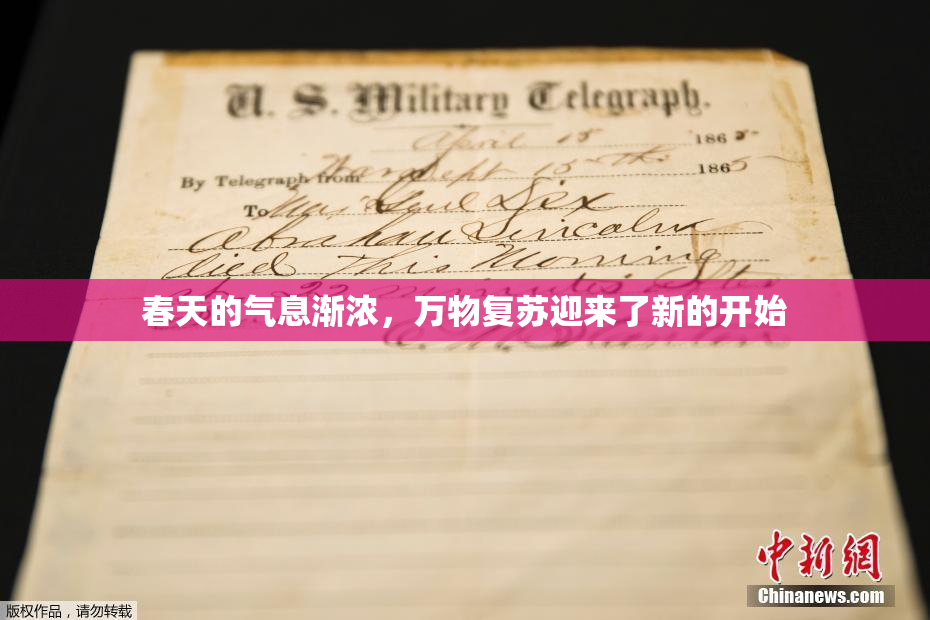 U. S. Military Telegraph.
April 15 1865
By Telegraph from War Dept 15th 1865
To Maj Genl Dix
Abraham Lincoln
died This Morning
at 22 minutes after
春天的气息渐浓，万物复苏迎来了新的开始
E. M. Stanton
中新網
Chinanews.com
版权作品，请勿转载